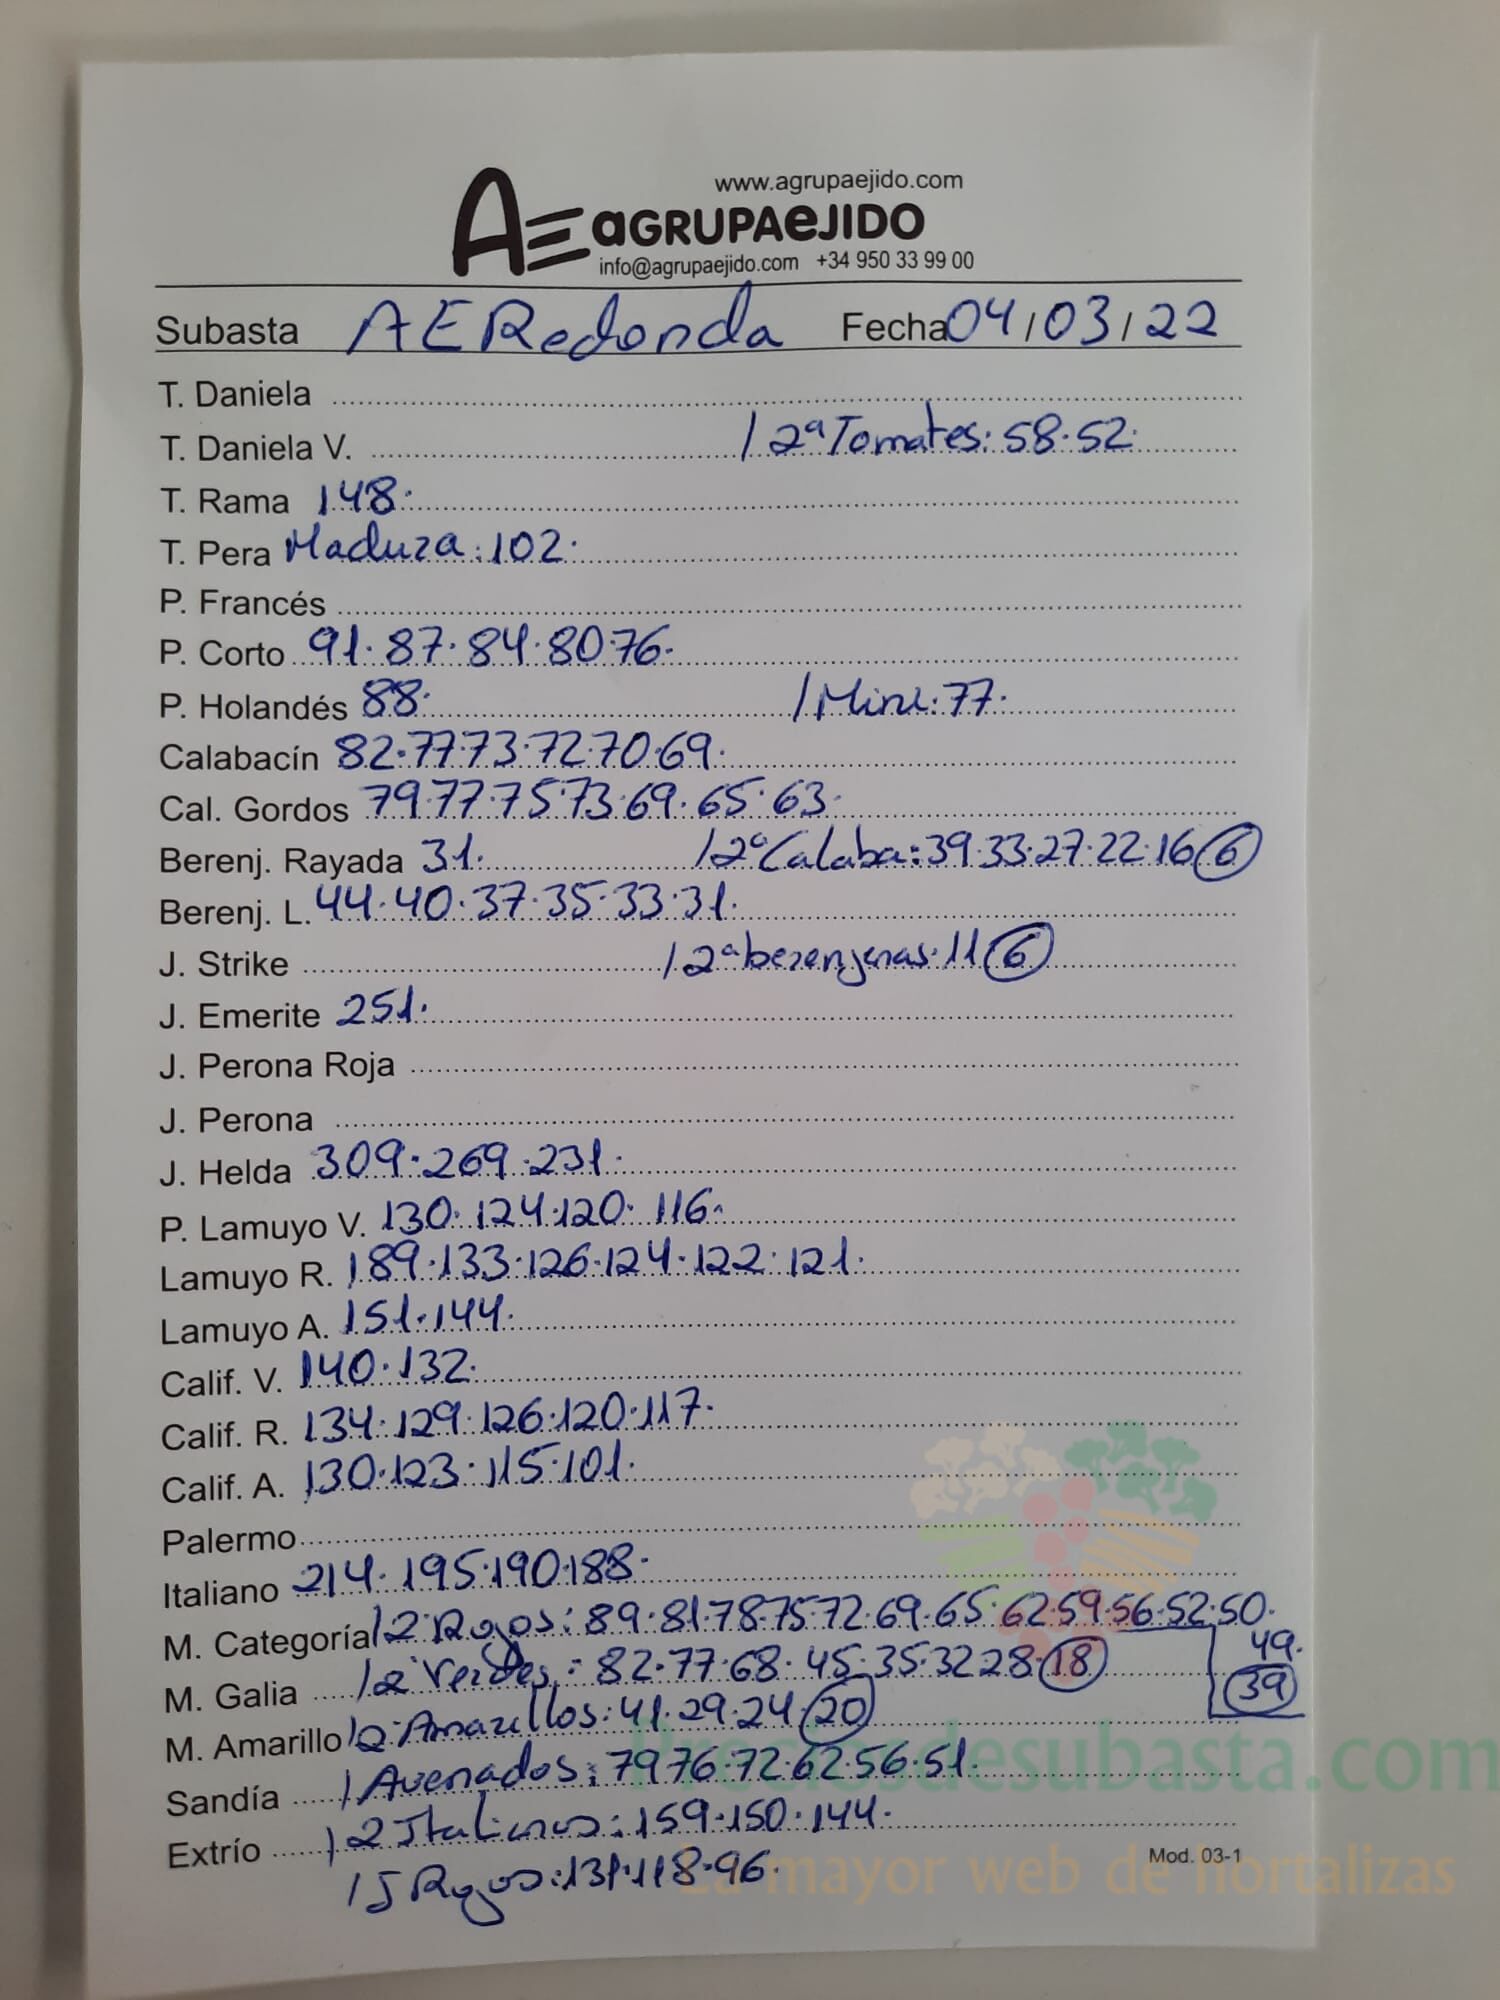 www.agrupaejido.com
AE aGRUPAeJIDO
info@agrupaejido.com +34 950 33 99 00
Subasta AERedonda Fecha 04/03/22
T. Daniela
T. Daniela V. / 2ª Tomates: 58·52·
T. Rama 148·
T. Pera Madura: 102·
P. Francés
P. Corto 91·87·84·80·76·
P. Holandés 88· / Mini: 77·
Calabacín 82·77·73·72·70·69·
Cal. Gordos 79·77·75·73·69·65·63·
Berenj. Rayada 31· / 2ª Calaba: 39·33·27·22·16 6
Berenj. L. 44·40·37·35·33·31·
J. Strike / 2ª berenjenas·11 6
J. Emerite 251·
J. Perona Roja
J. Perona
J. Helda 309·269·231·
P. Lamuyo V. 130·124·120·116·
Lamuyo R. 189·133·126·124·122·121·
Lamuyo A. 151·144·
Calif. V. 140·132·
Calif. R. 134·129·126·120·117·
Calif. A. 130·123·115·101·
Palermo
Italiano 214·195·190·188·
M. Categoría / 2ª Rojos: 89·81·78·75·72·69·65·62·59·56·52·50·
49·
M. Galia / 2ª Verdes: 82·77·68·45·35·32·28·18
39
M. Amarillo / 2ª Amarillos: 41·29·24·20
Preciosdesubasta.com
Sandía / Asurados: 79·76·72·62·56·51·
Extrío / 2 Italianos: 159·150·144·
Mod. 03-1
La mayor web de hortalizas
/ J Rojos: 131·118·96·